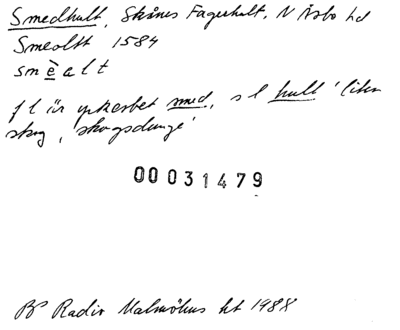 Smedhult, Skånes Fagerhult, N Åsbo hd
Smeoltt 1584
smèalt
f l är yrkesbet smed, s l hult 'liten
skog, skogsdunge'
00031479
BP Radio Malmöhus ht 1988